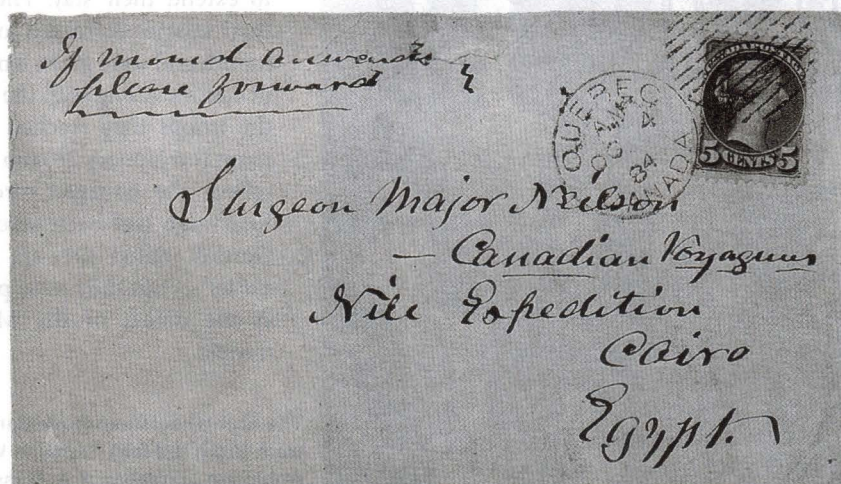 If moved onwards
please forward
QUEBEC
AM
OC 4
84
CANADA
CANADA POSTAGE
5 CENTS 5
Surgeon Major Neilson
– Canadian Voyageurs
Nile Expedition
Cairo
Egypt.